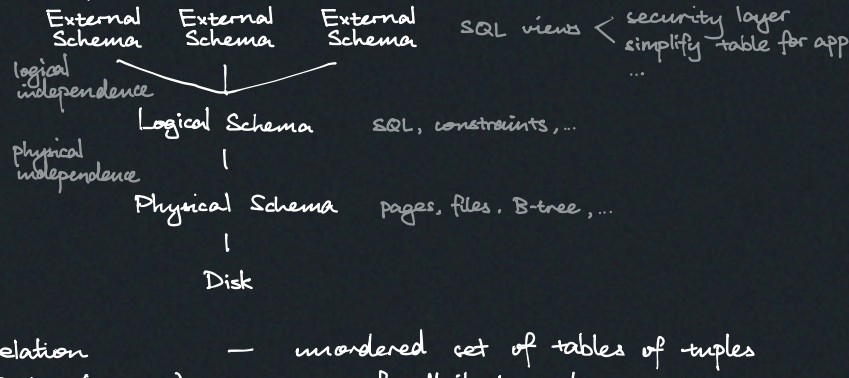 External External External
Schema Schema Schema
SQL views < security layer
simplify table for app
...
logical
independence
Logical Schema SQL, constraints, ...
physical
independence
Physical Schema pages, files, B-tree, ...
Disk
elation — unordered set of tables of tuples